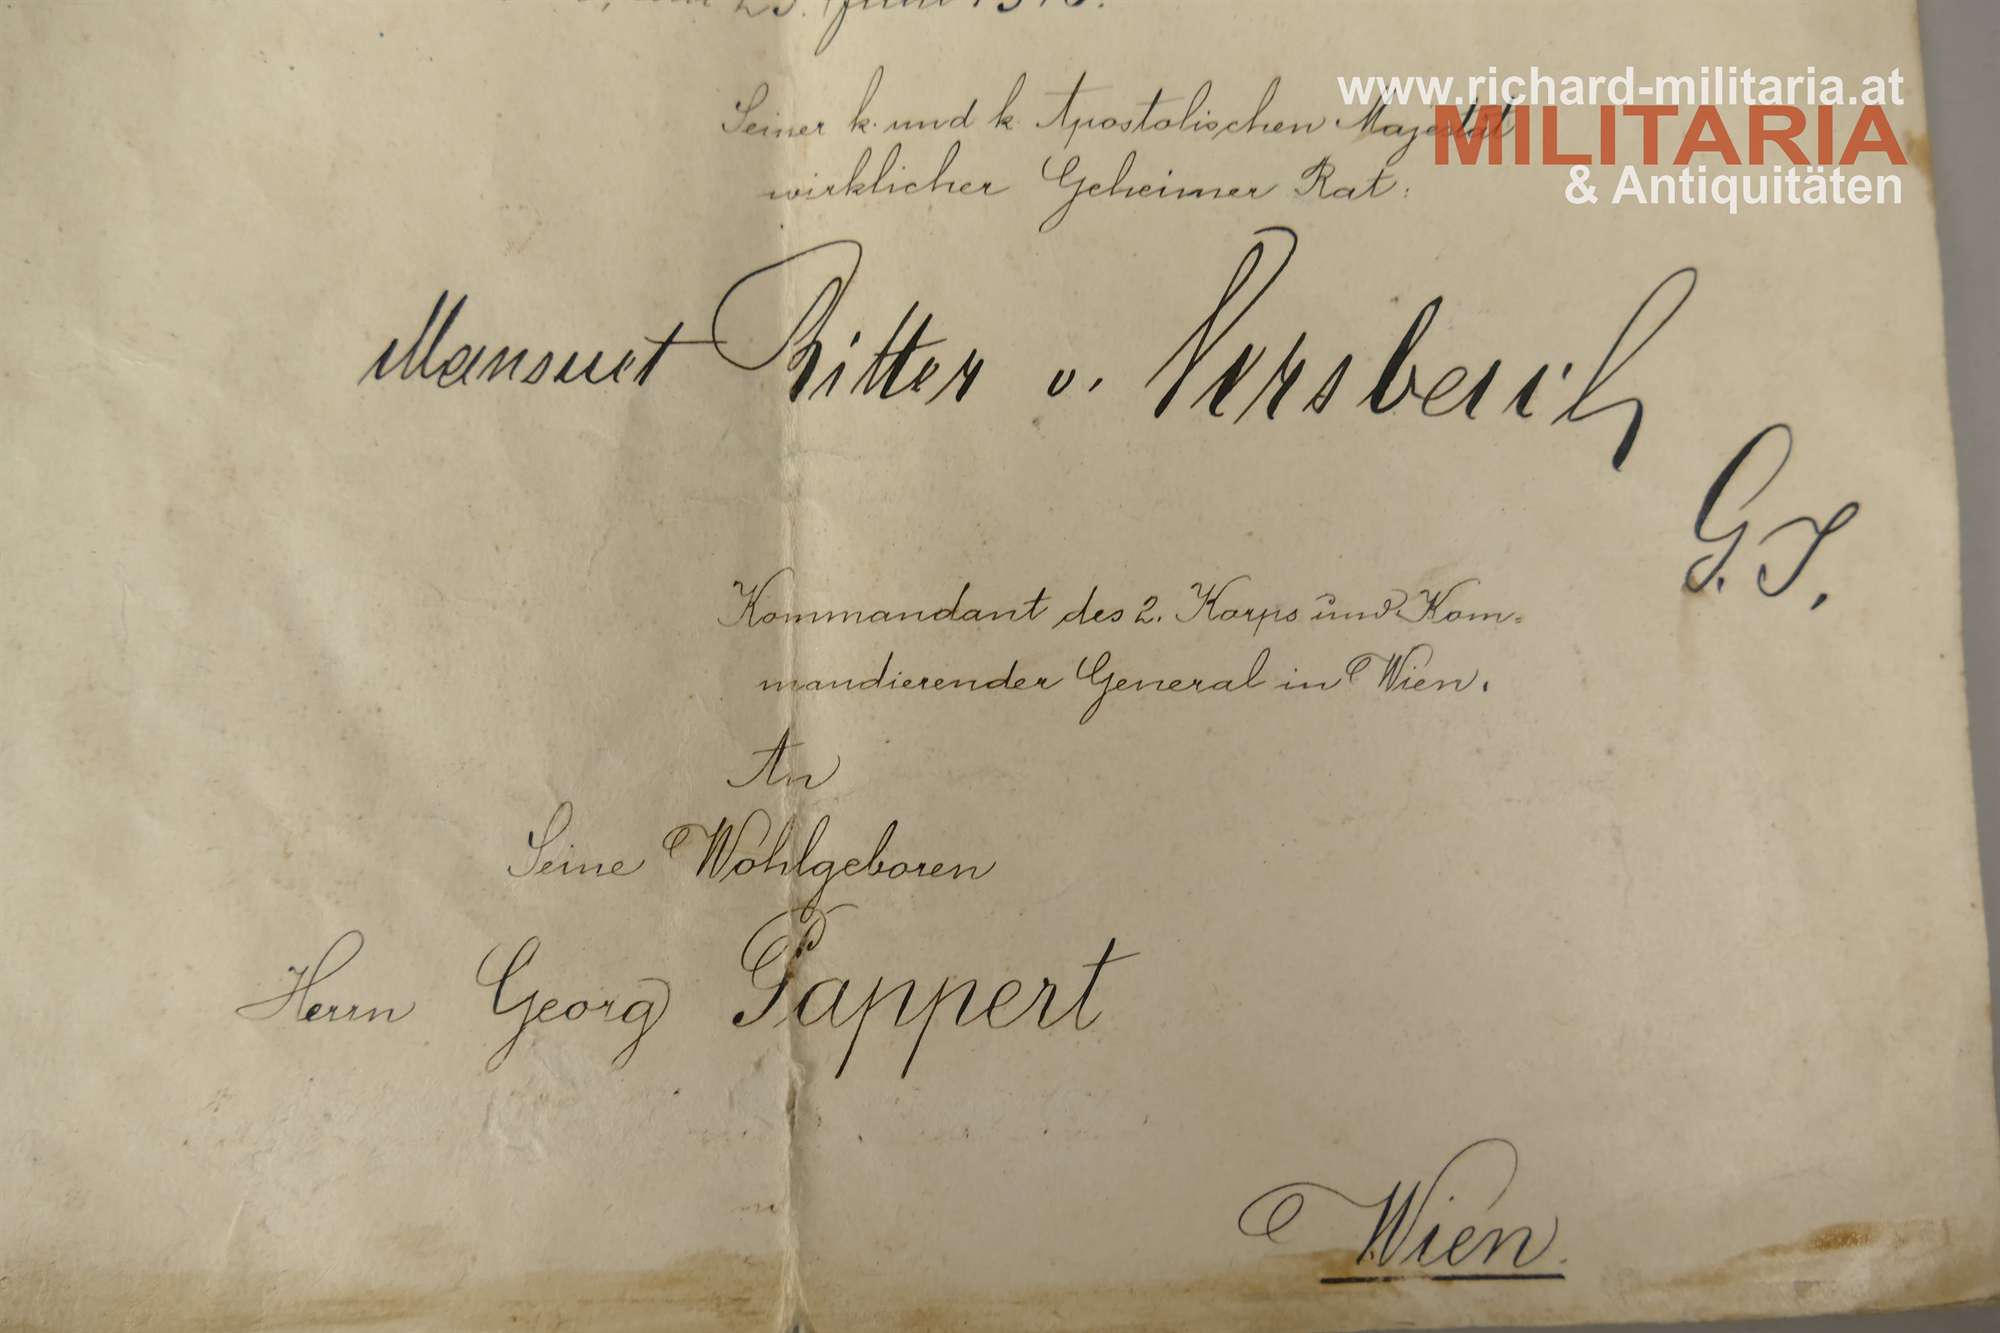 25. Juni 1910.
www.richard-militaria.at
MILITARIA
& Antiquitäten
Seiner k. und k. Apostolischen Majestät
wirklicher Geheimer Rat:
Mansuet Ritter v. Versbach
G. I.
Kommandant des 2. Korps und Kom=
mandierender General in Wien.
An
Seine Wohlgeboren
Herrn Georg Pappert
Wien.